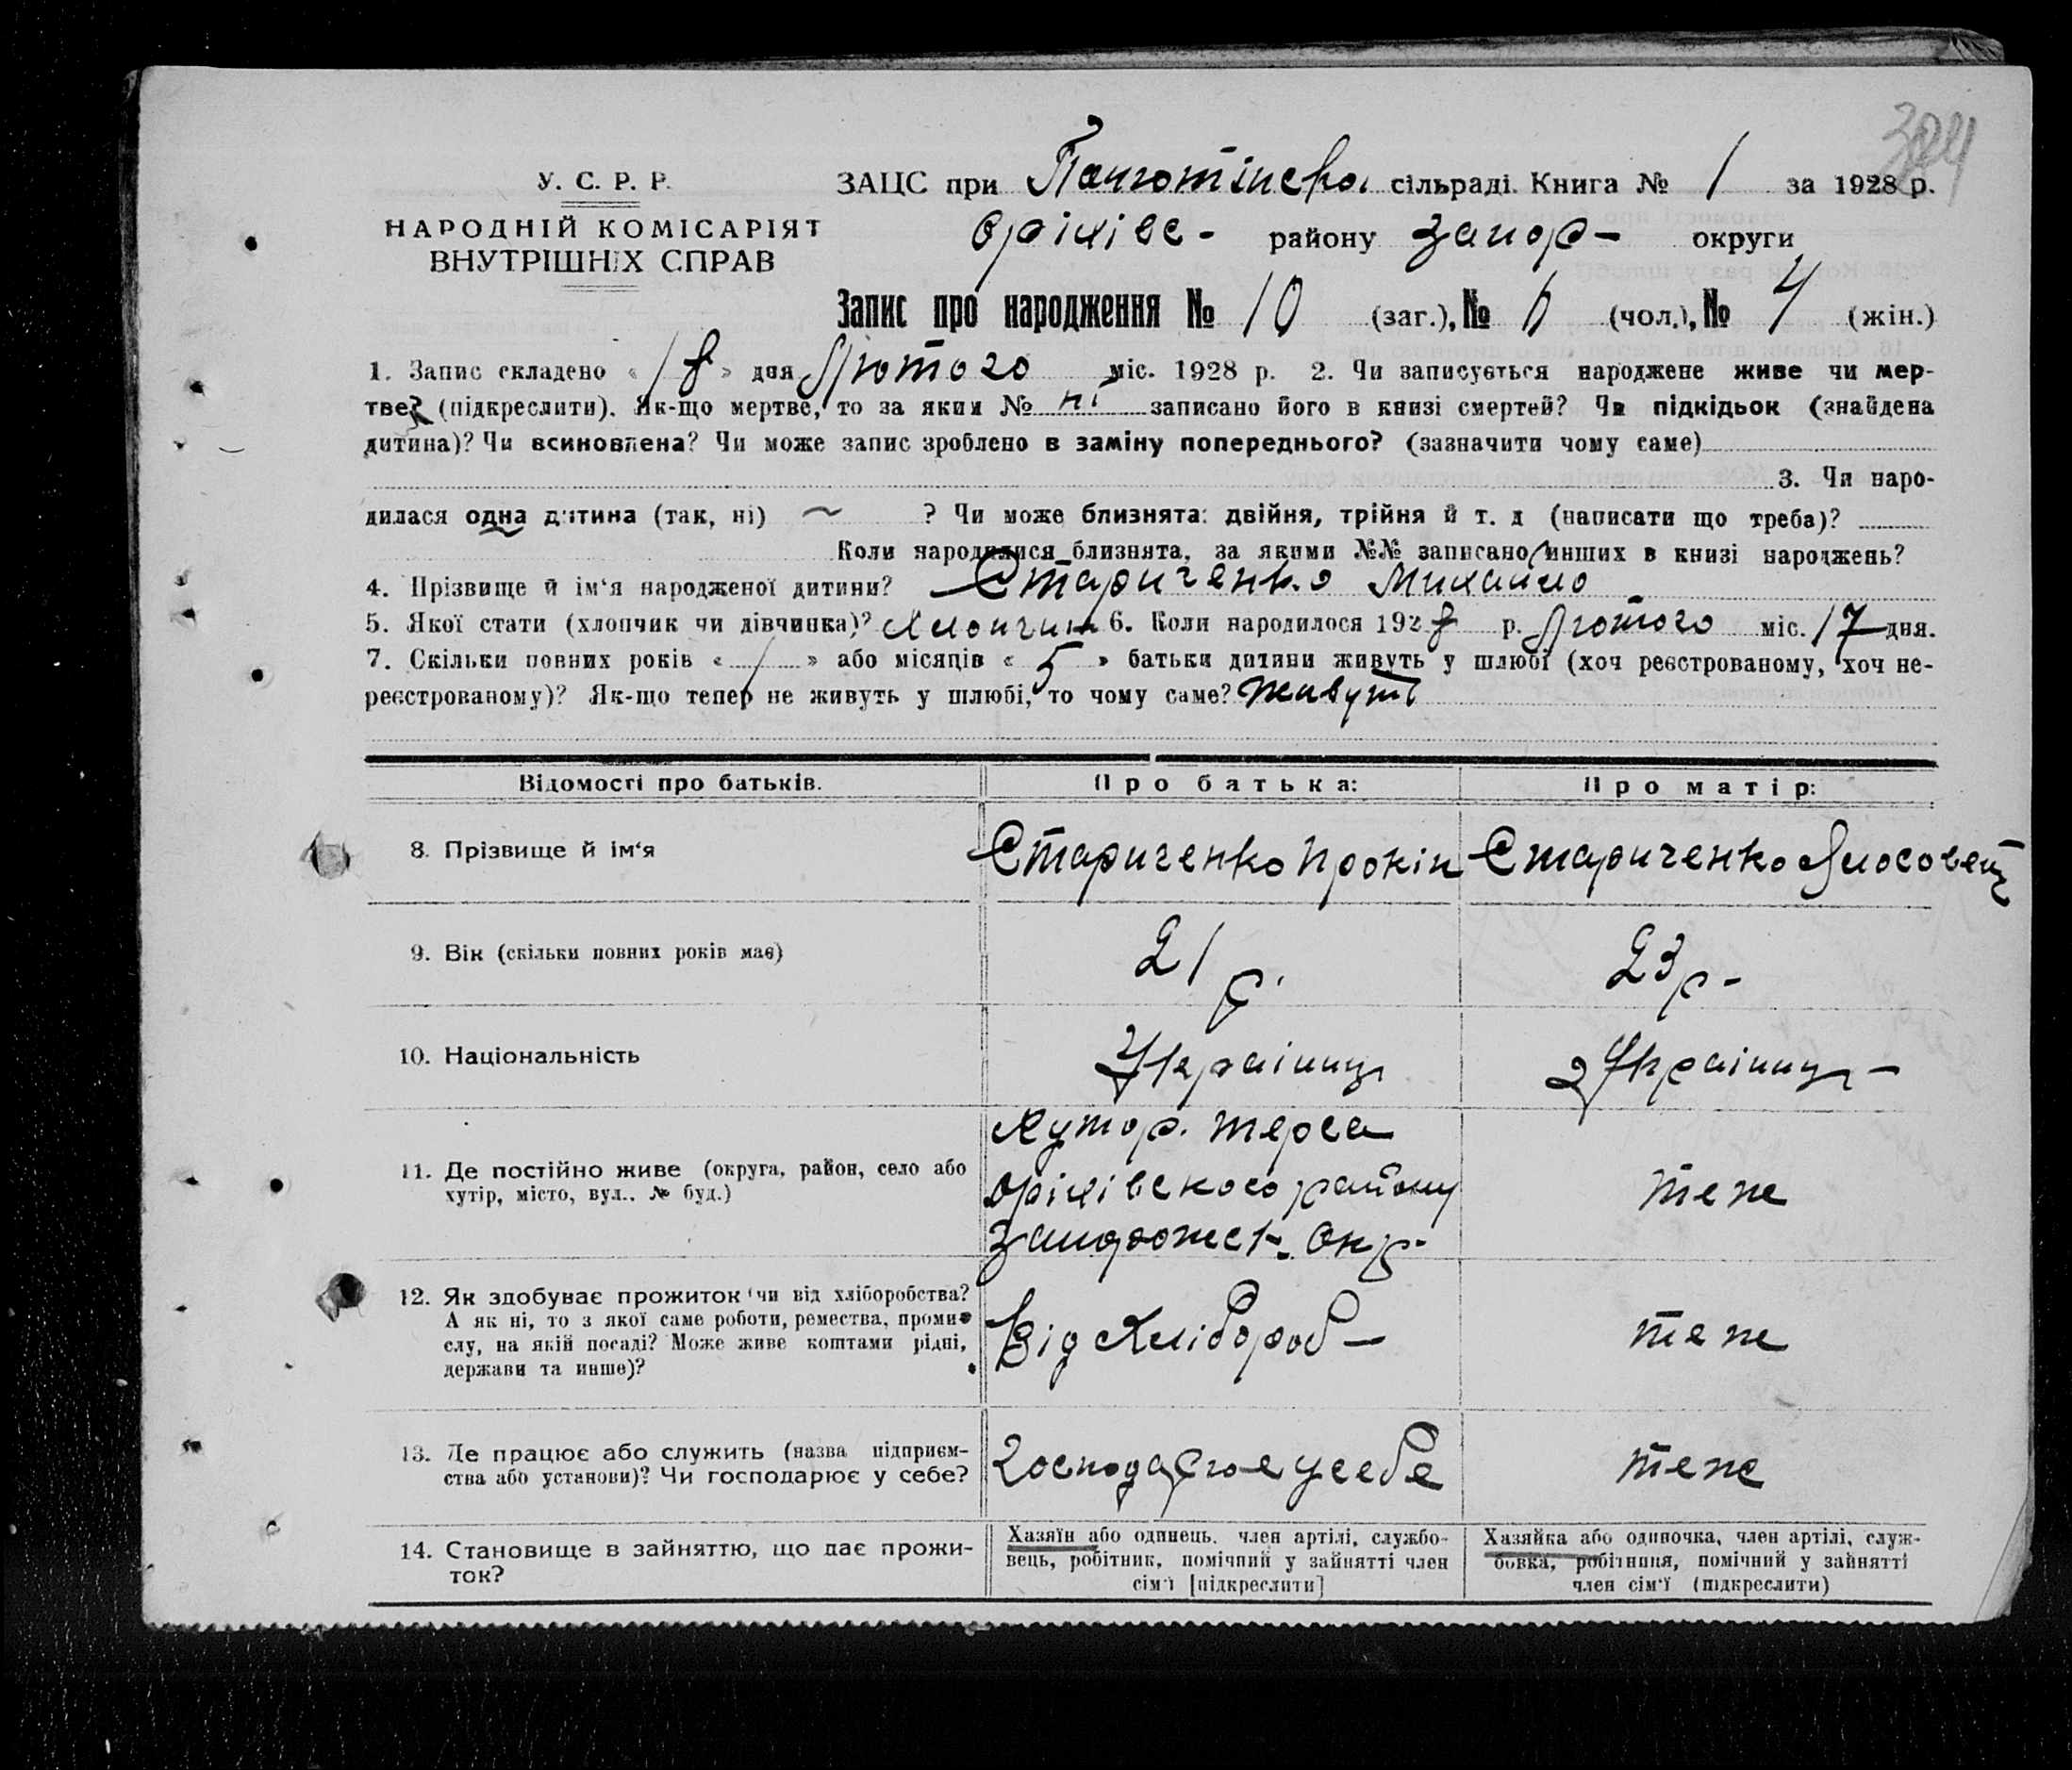 324
У. С. Р. Р.
НАРОДНІЙ КОМІСАРІЯТ
ВНУТРІШНІХ СПРАВ
ЗАЦС при сільраді. Книга № 1 за 1928 р.
Оріхівс- району Запор- округи
Запис про народження № 10 (заг.), № 6 (чол.), № 4 (жін.)
1. Запис складено « 18 » дня Лютого міс. 1928 р. 2. Чи записується народжене живе чи мер-
тве? (підкреслити). Як-що мертве, то за яким № ні записано його в книзі смертей? Чи підкідьок (знайдена
дитина)? Чи всиновлена? Чи може запис зроблено в заміну попереднього? (зазначити чому саме)
3. Чи наро-
дилася одна дитина (так, ні) ~ ? Чи може близнята: двійня, трійня й т. д (написати що треба)?
Коли народилися близнята, за якими №№ записано инших в книзі народжень?
4. Прізвище й ім'я народженої дитини? Стариченко Михайло
5. Якої стати (хлопчик чи дівчинка)? Хлопчик 6. Коли народилося 1928 р. Лютого міс. 17 дня.
7. Скільки повних років « / » або місяців « 5 » батьки дитини живуть у шлюбі (хоч реєстрованому, хоч не-
реєстрованому)? Як-що тепер не живуть у шлюбі, то чому саме? Живуть
Відомості про батьків. Про батька: Про матір:
8. Прізвище й ім'я Стариченко Прокіп Стариченко
9. Вік (скільки повних років має) 21 р. 23 р-
10. Національність Українц Українц-
11. Де постійно живе (округа, район, село або
хутір, місто, вул.. № буд.)
Хутор. Терса
Оріхівского району
Запорожск. Окр-
теж
12. Як здобуває прожиток (чи від хліборобства?
А як ні, то з якої саме роботи, ремества, проми-
слу, на якій посаді? Може живе коштами рідні,
держави та инше)?
Від Хлібороб-
теж
13. Де працює або служить (назва підприєм-
ства або установи)? Чи господарює у себе?
Господарює у себе
теж
14. Становище в зайняттю, що дає прожи-
ток?
Хазяїн або одинець. член артілі, службо-
вець, робітник, помічний у зайнятті член
сім'ї [підкреслити]
Хазяйка або одиночка, член артілі, служ-
бовка, робітниця, помічний у зайнятті
член сім'ї (підкреслити)